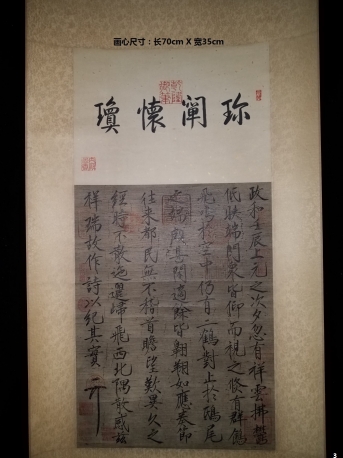 画心尺寸：长70cm X 宽35cm
珎闡懷瓊
政和壬辰上元之次夕忽有祥雲拂鬱
低映端門衆皆仰而視之倏有群鶴
飛鳴於空中仍有二鶴對止於鴟尾
之端頗甚閒適餘皆翱翔如應奏節
往来都民無不稽首瞻望歎異久之
經時不散迤邐歸飛西北隅散感茲
祥瑞故作詩以紀其實